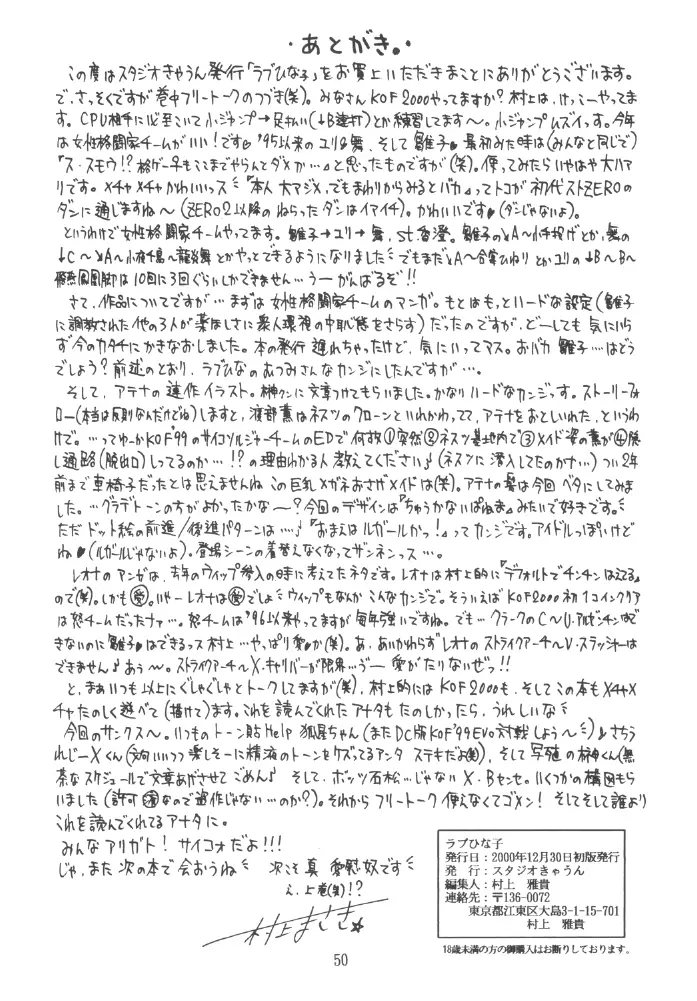 ・あとがき。・
この度はスタジオきゃうん発行「ラブひな子」をお買上いただきまことにありがとうございます。
で、さっそくですが巻中フリートークのつづき(笑)。みなさんKOF2000やってますか?村上は、けっこーやってま
す。CPU相手に 小ジャンプ→足払い(↓B連打)とか練習してます〜。小ジャンプムズイっす。今年
は女性格闘家チームがいい!です♥'95以来のユリ&舞、そして雛子♥最初みた時は(みんなと同じで)
『ス・スモウ!?格ゲー もここまでやらんとダメか…』と思ったものですが(笑)。使ってみたらいやはや大ハマ
リです。メチャメチャかわいいっス 『本人 大マジメ、でもまわりからみるとバカ』ってトコが初代ストZEROの
ダンに通じますね〜(ZERO2以降のねらったダンはイマイチ)。かわいいです♥(ダンじゃないよ)。
というわけで女性格闘家チームやってます。雛子→ユリ→舞、st.香澄。雛子の A〜小手投げとか、舞の
↓C〜 A〜小夜千鳥〜龍炎舞とかやっとできるようになりました でもまだ A〜合掌ひねりとかユリの↓B〜B〜
飛燕鳳凰脚は10回に3回ぐらいしかできません…うーがんばるぞ!!
さて、作品についてですが…まずは女性格闘家チームのマンガ。もとはもっとハードな設定(雛子
に調教された他の3人が 衆人環視の中恥態をさらす)だったのですが、どーしても気にいら
ず今のカタチにかきなおしました。本の発行遅れちゃったけど、気にいってマス。おバカ雛子…はどう
でしょう?前述のとおり、ラブひなのあつみさんなカンジにしたんですが…。
そして、アテナの連作イラスト。榊クンに文章つけてもらいました。かなりハードなカンジっす。ストーリーフォ
ロー(本当は反則なんだけどね)しますと、渡部薫はネスツのクローンといれかわってて、アテナをおとしいれた、というわ
けで。…ってゆーかKOF'99のサイコソルジャーチームのEDで何故①突然②ネスツ基地内で③メイド姿の薫が④脱
し通路(脱出口)しってるのか…!?の理由わかる人教えてください♪(ネスツに潜入してたのか…)つい2年
前まで車椅子だったとは思えませんねこの巨乳メガネおさげメイドは(笑)。アテナの髪は今回ベタにしてみま
した。…グラデトーンの方がよかったかな〜?今回のデザインは『ちゅうかないぱねま』みたいで好きです。
ただドット絵の前進/後進パターンは…♪『おまえはルガールかっ!』ってカンジです。アイドルっぽいけど
ね♥(ルガールじゃないよ)。登場シーンの着替えなくなってザンネンっス…。
レオナのマンガは、去年のウィップ参入の時に考えてたネタです。レオナは村上的に『デフォルトでチンチンはえてる』
ので(笑)。しかも 。いやーレオナは でしょ ウィップもなんかこんなカンジで。そういえばKOF2000初1コインクリア
は怒チームだったナァ…。怒チームは'96以来やってますが毎年強いですね。でも…クラークのC〜U.アルゼンチンは
できないのに雛子♥はできるっス村上…やっぱり愛♥か(笑)。あ、あいかわらずレオナのストライクアーチ〜V・スラッシャーは
できません♪あぅ〜。ストライクアーチ〜X.キャリバーが限界…ゔー 愛がたりないぜっ!!
と、まぁいつも以上にぐしゃぐしゃとトークしてますが(笑)、村上的にはKOF2000も、そしてこの本もメチャメ
チャたのしく遊べて(描けて)ます。これを読んでくれたアナタもたのしかったら、うれしいな
今回のサンクス〜。いつものトーン貼Help 狐 ちゃん(またDC版KOF'99Evo対戦しよう〜)♪さちう
れじーXくん(文句いいつつ楽しそーに精液のトーンをケズッてるアンタ ステキだよ(笑))、そして写植の榊くん(無
茶なスケジュールで文章あげさせてごめん♪ そして、ボッツ石松…じゃないX・Bセンセ。いくつかの構図もら
いました(許可済なので盗作じゃない…のか?)。それからフリートーク使えなくてゴメン!そしてそして誰より
これを読んでくれてるアナタに。
みんなアリガト!サイコォだよ!!!
じゃ、また次の本で会おうね 次こそ真 愛慰奴です
え、上巻(笑)!?
村上まさき☆
ラブひな子
発行日:2000年12月30日初版発行
発 行:スタジオきゃうん
編集人:村上 雅貴
連絡先:〒136-0072
東京都江東区大島3-1-15-701
村上 雅貴
18歳未満の方の御購入はお断りしております。
50